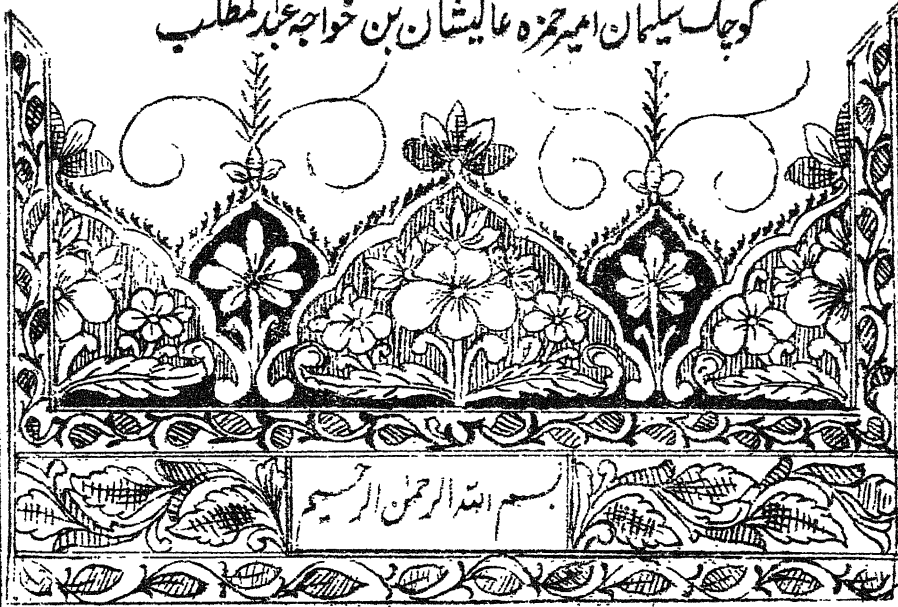 کوچاک سلیمان امیر حمزہ عالیشان بن خواجہ عبدالمطلب
بسم اللہ الرحمن الرحیم